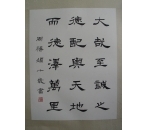 大哉至誠之
德配與天地
而德澤萬里